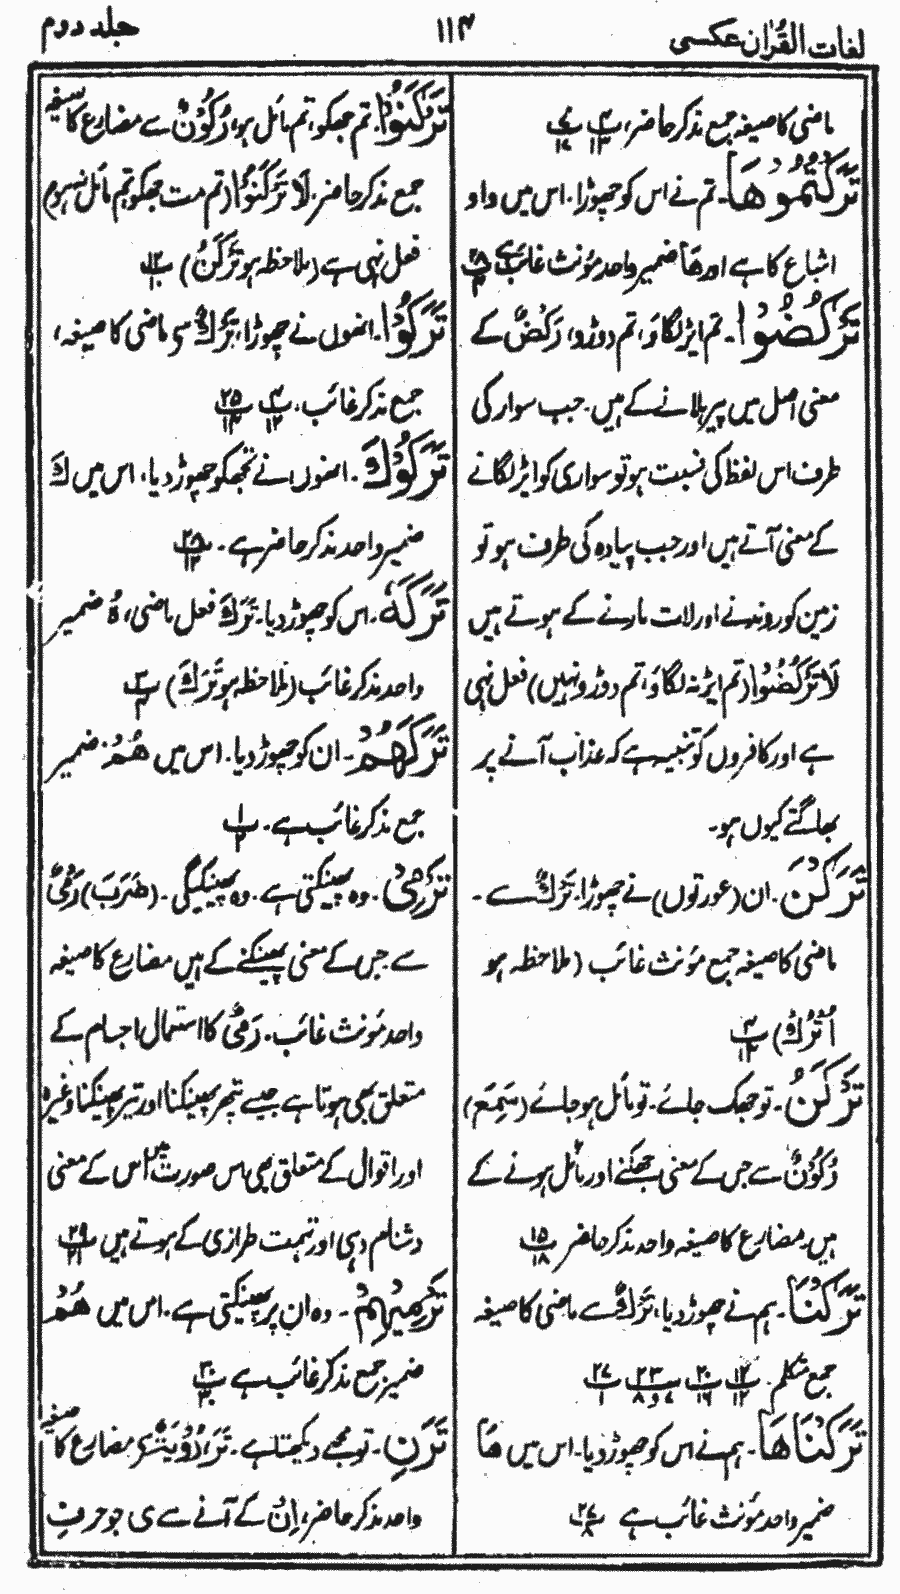 لغات القرآن عکسی
۱۱۴
جلد دوم
ماضی کا صیغہ جمع مذکر حاضر،
تَرَكْتُمُوْهَا۔ تم نے اس کو چھوڑا۔ اس میں واو
اشباع کا ہے اور ھَا ضمیر واحد مؤنث غائب ہے
تَرْكُضُوْا۔ تم ایڑ لگاؤ، تم دوڑو، رَکْضٌ کے
معنی اصل میں پیر ہلانے کے ہیں۔ جب سوار کی
طرف اس لفظ کی نسبت ہو تو سواری کو ایڑ لگانے
کے معنی آتے ہیں اور جب پیادہ کی طرف ہو تو
زمین کو روندنے اور لات مارنے کے ہوتے ہیں
لَا تَرْكُضُوْا (تم ایڑ نہ لگاؤ، تم دوڑو نہیں) فعل نہی
ہے اور کافروں کو تنبیہ ہے کہ عذاب آنے پر
بھاگتے کیوں ہو۔
تَرَكْنَ۔ ان (عورتوں) نے چھوڑا۔ تَرْكٌ سے۔
ماضی کا صیغہ جمع مؤنث غائب (ملاحظہ ہو
اُتْرُكْ) ۴/۱۲
تَرْكَنُ۔ تو جھک جائے۔ تو مائل ہو جائے (سَمِعَ)
رُكُوْنٌ سے جس کے معنی جھکنے اور مائل ہونے کے
ہیں۔ مضارع کا صیغہ واحد مذکر حاضر ۱۵/۱۸
تَرَكْنَا۔ ہم نے چھوڑ دیا، تَرْكٌ سے ماضی کا صیغہ
جمع متکلم۔
تَرَكْنَاهَا۔ ہم نے اس کو چھوڑ دیا۔ اس میں ھَا
ضمیر واحد مؤنث غائب ہے ۲۷/۸
تَرْكَنُوْا۔ تم جھکو، تم مائل ہو، رُكُوْنٌ سے مضارع کا صیغہ
جمع مذکر حاضر۔ لَا تَرْكَنُوْا (تم مت جھکو تم مائل نہ ہو)
فعل نہی ہے (ملاحظہ ہو تَرْكَنُ) ۱۲/۱۰
تَرَكُوْا۔ انھوں نے چھوڑا، تَرْكٌ سے ماضی کا صیغہ،
جمع مذکر غائب۔ ۴/۱۲ ۲۵/۱۴
تَرَكُوْكَ۔ انھوں نے تجھ کو چھوڑ دیا، اس میں كَ
ضمیر واحد مذکر حاضر ہے۔ ۲۸/۱۲
تَرَكَهٗ۔ اس کو چھوڑ دیا۔ تَرَكَ فعل ماضی، ہٗ ضمیر
واحد مذکر غائب (ملاحظہ ہو تَرَكَ)
تَرَكَهُمْ۔ ان کو چھوڑ دیا۔ اس میں هُمْ ضمیر
جمع مذکر غائب ہے۔ ۱/۲
تَرْمِیْ۔ وہ پھینکتی ہے۔ وہ پھینکیگی۔ (ضَرَبَ) رَمْیٌ
سے جس کے معنی پھینکنے کے ہیں مضارع کا صیغہ
واحد مؤنث غائب۔ رَمْیٌ کا استعمال اجسام کے
متعلق بھی ہوتا ہے جیسے پتھر پھینکنا اور تیر پھینکنا وغیرہ
اور اقوال کے متعلق بھی اس صورت میں اس کے معنی
دشنام دہی اور تہمت طرازی کے ہوتے ہیں ۲۹/۲۱
تَرْمِیْهِمْ۔ وہ ان پر پھینکتی ہے۔ اس میں هُمْ
ضمیر جمع مذکر غائب ہے ۳۰/۳۰
تَرَنِ۔ تو مجھے دیکھتا ہے۔ تَرَ، رُؤْيَتٌ سے مضارع کا صیغہ
واحد مذکر حاضر، اِنْ کے آنے سے ی جو حرفِ